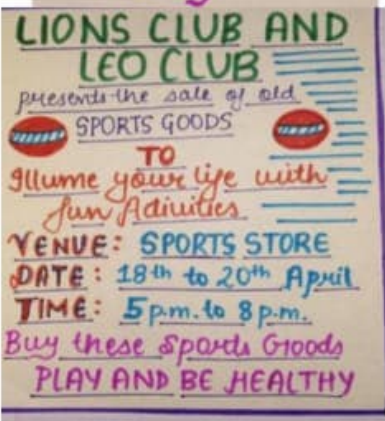 LIONS CLUB AND
LEO CLUB
presents the sale of old
SPORTS GOODS
TO
Illume your life with
fun Adiuities
VENUE: SPORTS STORE
DATE: 18th to 20th April
TIME: 5 p.m. to 8 p.m.
Buy these Sports Goods
PLAY AND BE HEALTHY